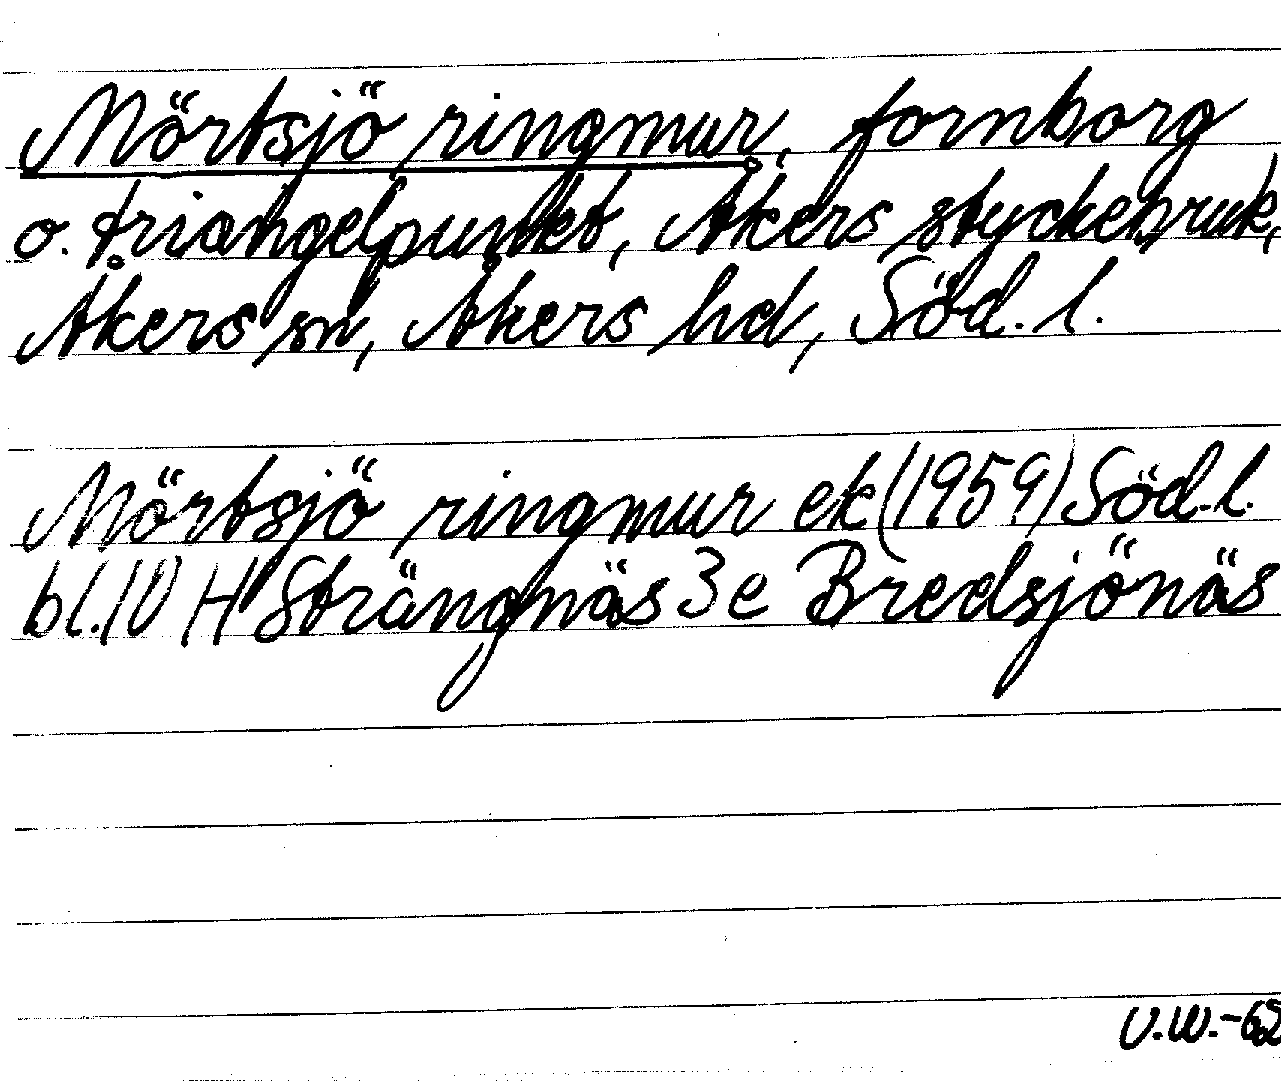 Mörtsjö ringmur, fornborg
o. triangelpunkt, Åkers styckebruk,
Åkers sn, Åkers hd, Söd. l.
Mörtsjö ringmur ek (1959) Söd. l.
bl. 10 H Strängnäs 3 e Bredsjönäs
V.W.-62